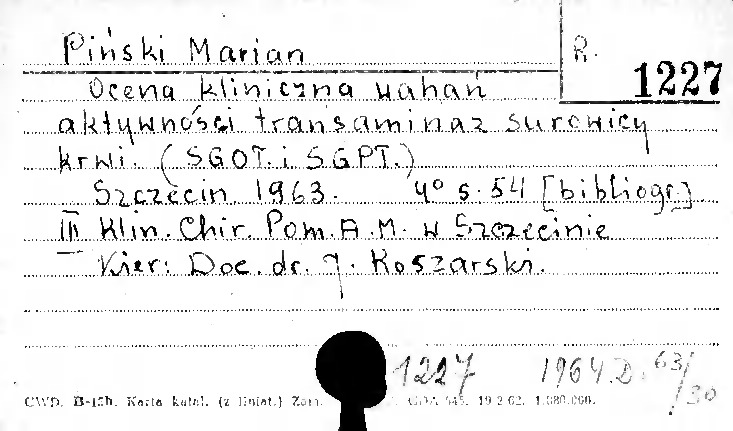 Piński Marian
R.
1227
Ocena kliniczna wahań
aktywności transaminaz surowicy
krwi. (SGOT. i SGPT.)
Szczecin 1963. 4° s. 54 [bibliogr.]
III Klin. Chir. Pom. A. M. w Szczecinie
Kier: Doc. dr. J. Koszarski.
1227 1964.D. 63/
/30
CWD. Karta katal. (z liniat.) 19 2 62.